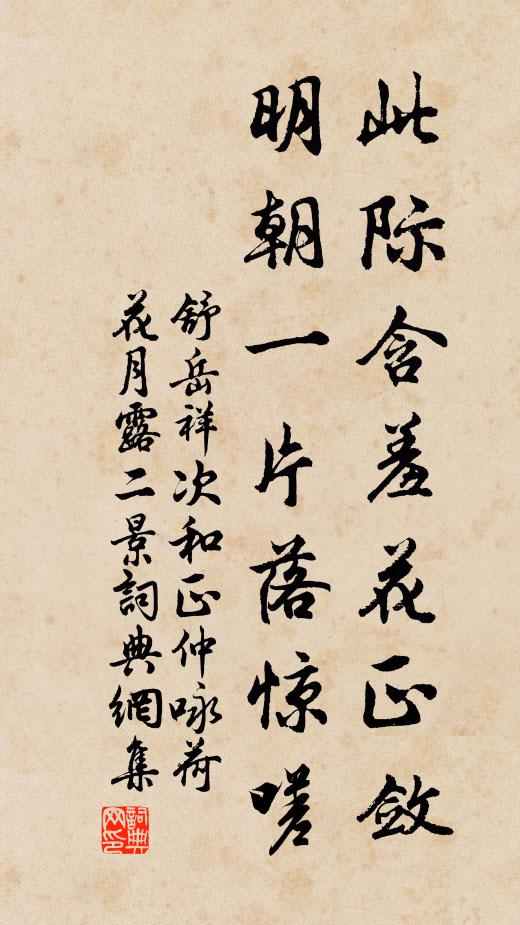 此际含羞花正敛
明朝一片落惊嗟
舒岳祥次和正仲咏荷
花月露二景詞典網集
詞典网印